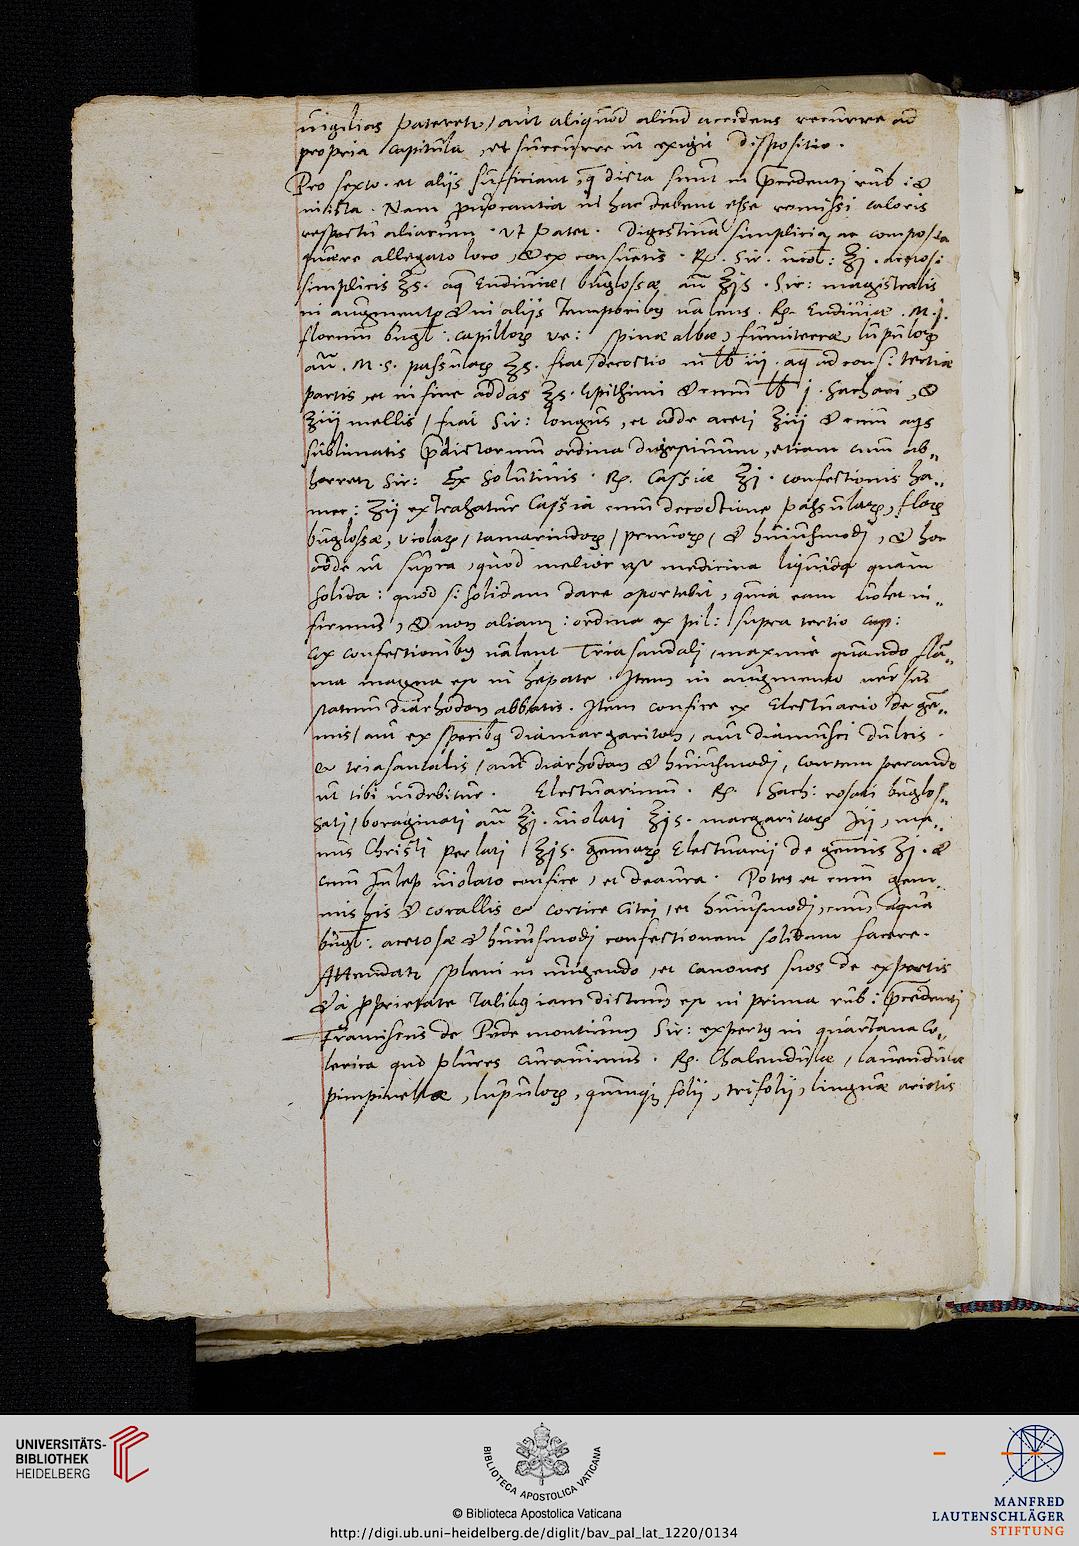 vigilias pateretur, aut aliquod aliud accidens recurre ad
propria capitula, et succurre ut exigit dispositio.
Pro sexto. et alijs sufficiant, q̄ dicta sunt in p̄cedenti rub: et
inista. Nam provocantia in hac debent esse remissi caloris
respectu aliarum. ut patet. Digestiva simplicia ac composita
quaere allegato loco, et ex consuetis. Rp. Sir. viol: ℥j. acetosi
simplicis ℥s. aq̄ Endiviae, buglossae aū ℥js. Sir: magistralis
in augmento et in alijs temporibus valens. Rp. Endiviae. M. j.
florum bugl: capillorum ve: spinae albae, fumiterrae, lupulorum
aū. M. s. passularum ℥s. fiat decoctio in lb iij. aq̄ ad cons: tertiae
partis, et in fine addas ℥s. Epithimi et cum lb j. Sachari, et
℥iij mellis, fiat Sir: longus, et adde aceti ℥iij et cum aqs
sublimatis p̄dictorum ordina digestivum, etiam cum ab„
horret Sir: Ex solutivis. Rp. Cassiae ℥j. confectionis ha„
mec: ℥ij extrahatur Cassia cum decoctione passularum, florum
buglossae, violarum, tamarindorum, prunorum, et huiusmodj, et hoc
adde ut supra, quod melior est medicina liquida quam
solida: quod si solidam dare oportebit, quia eam volet in„
firmus, et non aliam: ordina ex pil: supra tertio cap:
Ex confectionibus valent Triasandalj, maxime quando flā„
ma magna est in hepate. Item in augmento versus
statum diarhodon abbatis. Item confice ex Electuario de gē„
mis, aut ex speciebus diamargariton, aut diamusci dulcis.
et triasantalis, aut diarhodon et huiusmodj, cortem perando
ut tibi videbitur. Electuarium. Rp. Sach: rosati buglos„
sati, boraginati aū ℥j. violati ℥js. margaritarum ℈ij, ma„
nus Christi perlati ℥js. gemmarum Electuarij de gemmis ℥j. et
cum Julep violato confice, et deaura. Potes et cum gem„
mis his et corallis et cortice Citri, et huiusmodj, cum aqua
bugl: acetosae et huiusmodj confectionem solidam facere.
Attendatur spleni in ungendo, et canones suos de expertis
et à proprietate talibus iam dictum est in prima rub: p̄cedenti
Franciscus de Pede montium Sir: expertus in quartana Co„
lerica quo plures curavimus. Rp. Chalendulae, lavendulae
pimpinellae, lupulorum, quinque folij, trifolij, linguae arietis
UNIVERSITÄTS-
BIBLIOTHEK
HEIDELBERG
BIBLIOTECA APOSTOLICA VATICANA
© Biblioteca Apostolica Vaticana
http://digi.ub.uni-heidelberg.de/diglit/bav_pal_lat_1220/0134
MANFRED
LAUTENSCHLÄGER
STIFTUNG